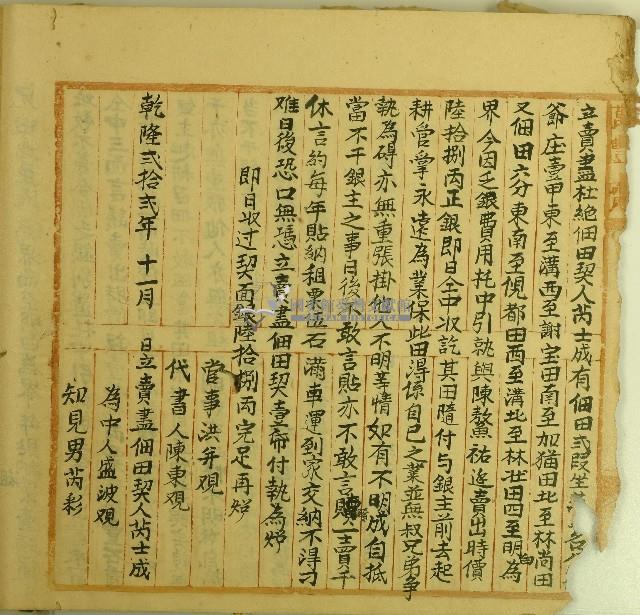 立賣盡杜絕佃田契人芮士成有佃田弍叚坐
爺庄壹甲東至溝西至謝宝田南至加猫田北至林尚田
又佃田六分東南至倪都田西至溝北至林壯田四至明為
界今因乏銀費用托中引就與陳鰲祐邊賣出時價
陸拾捌両正銀即日仝中收訖其田隨付与銀主前去起
耕管掌永遠為業保此田得係自己之業並無叔兄弟爭
執為碍亦無重張掛他人不明等情如有不明成自抵
當不干銀主之事日後不敢言貼亦不敢言贖一賣千
休言約每年貼納租粟石滿車運到家交納不得刁
难日後恐口無憑立賣盡佃田契壹帋付執為炤
即日收过契面銀陸拾捌両完足再炤
管事洪弁观
代書人陳東观
乾隆弍拾弍年十一月 日立賣盡佃田契人芮士成
為中人盛波观
知見男芮彩